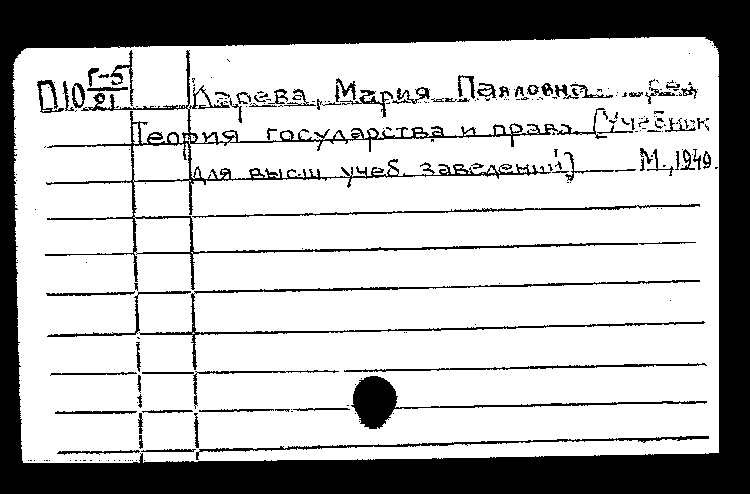 П10 Г-5/21 Карева, Мария Павловна. ред.
Теория государства и права. [Учебник
для высш. учеб. заведений] М., 1949.